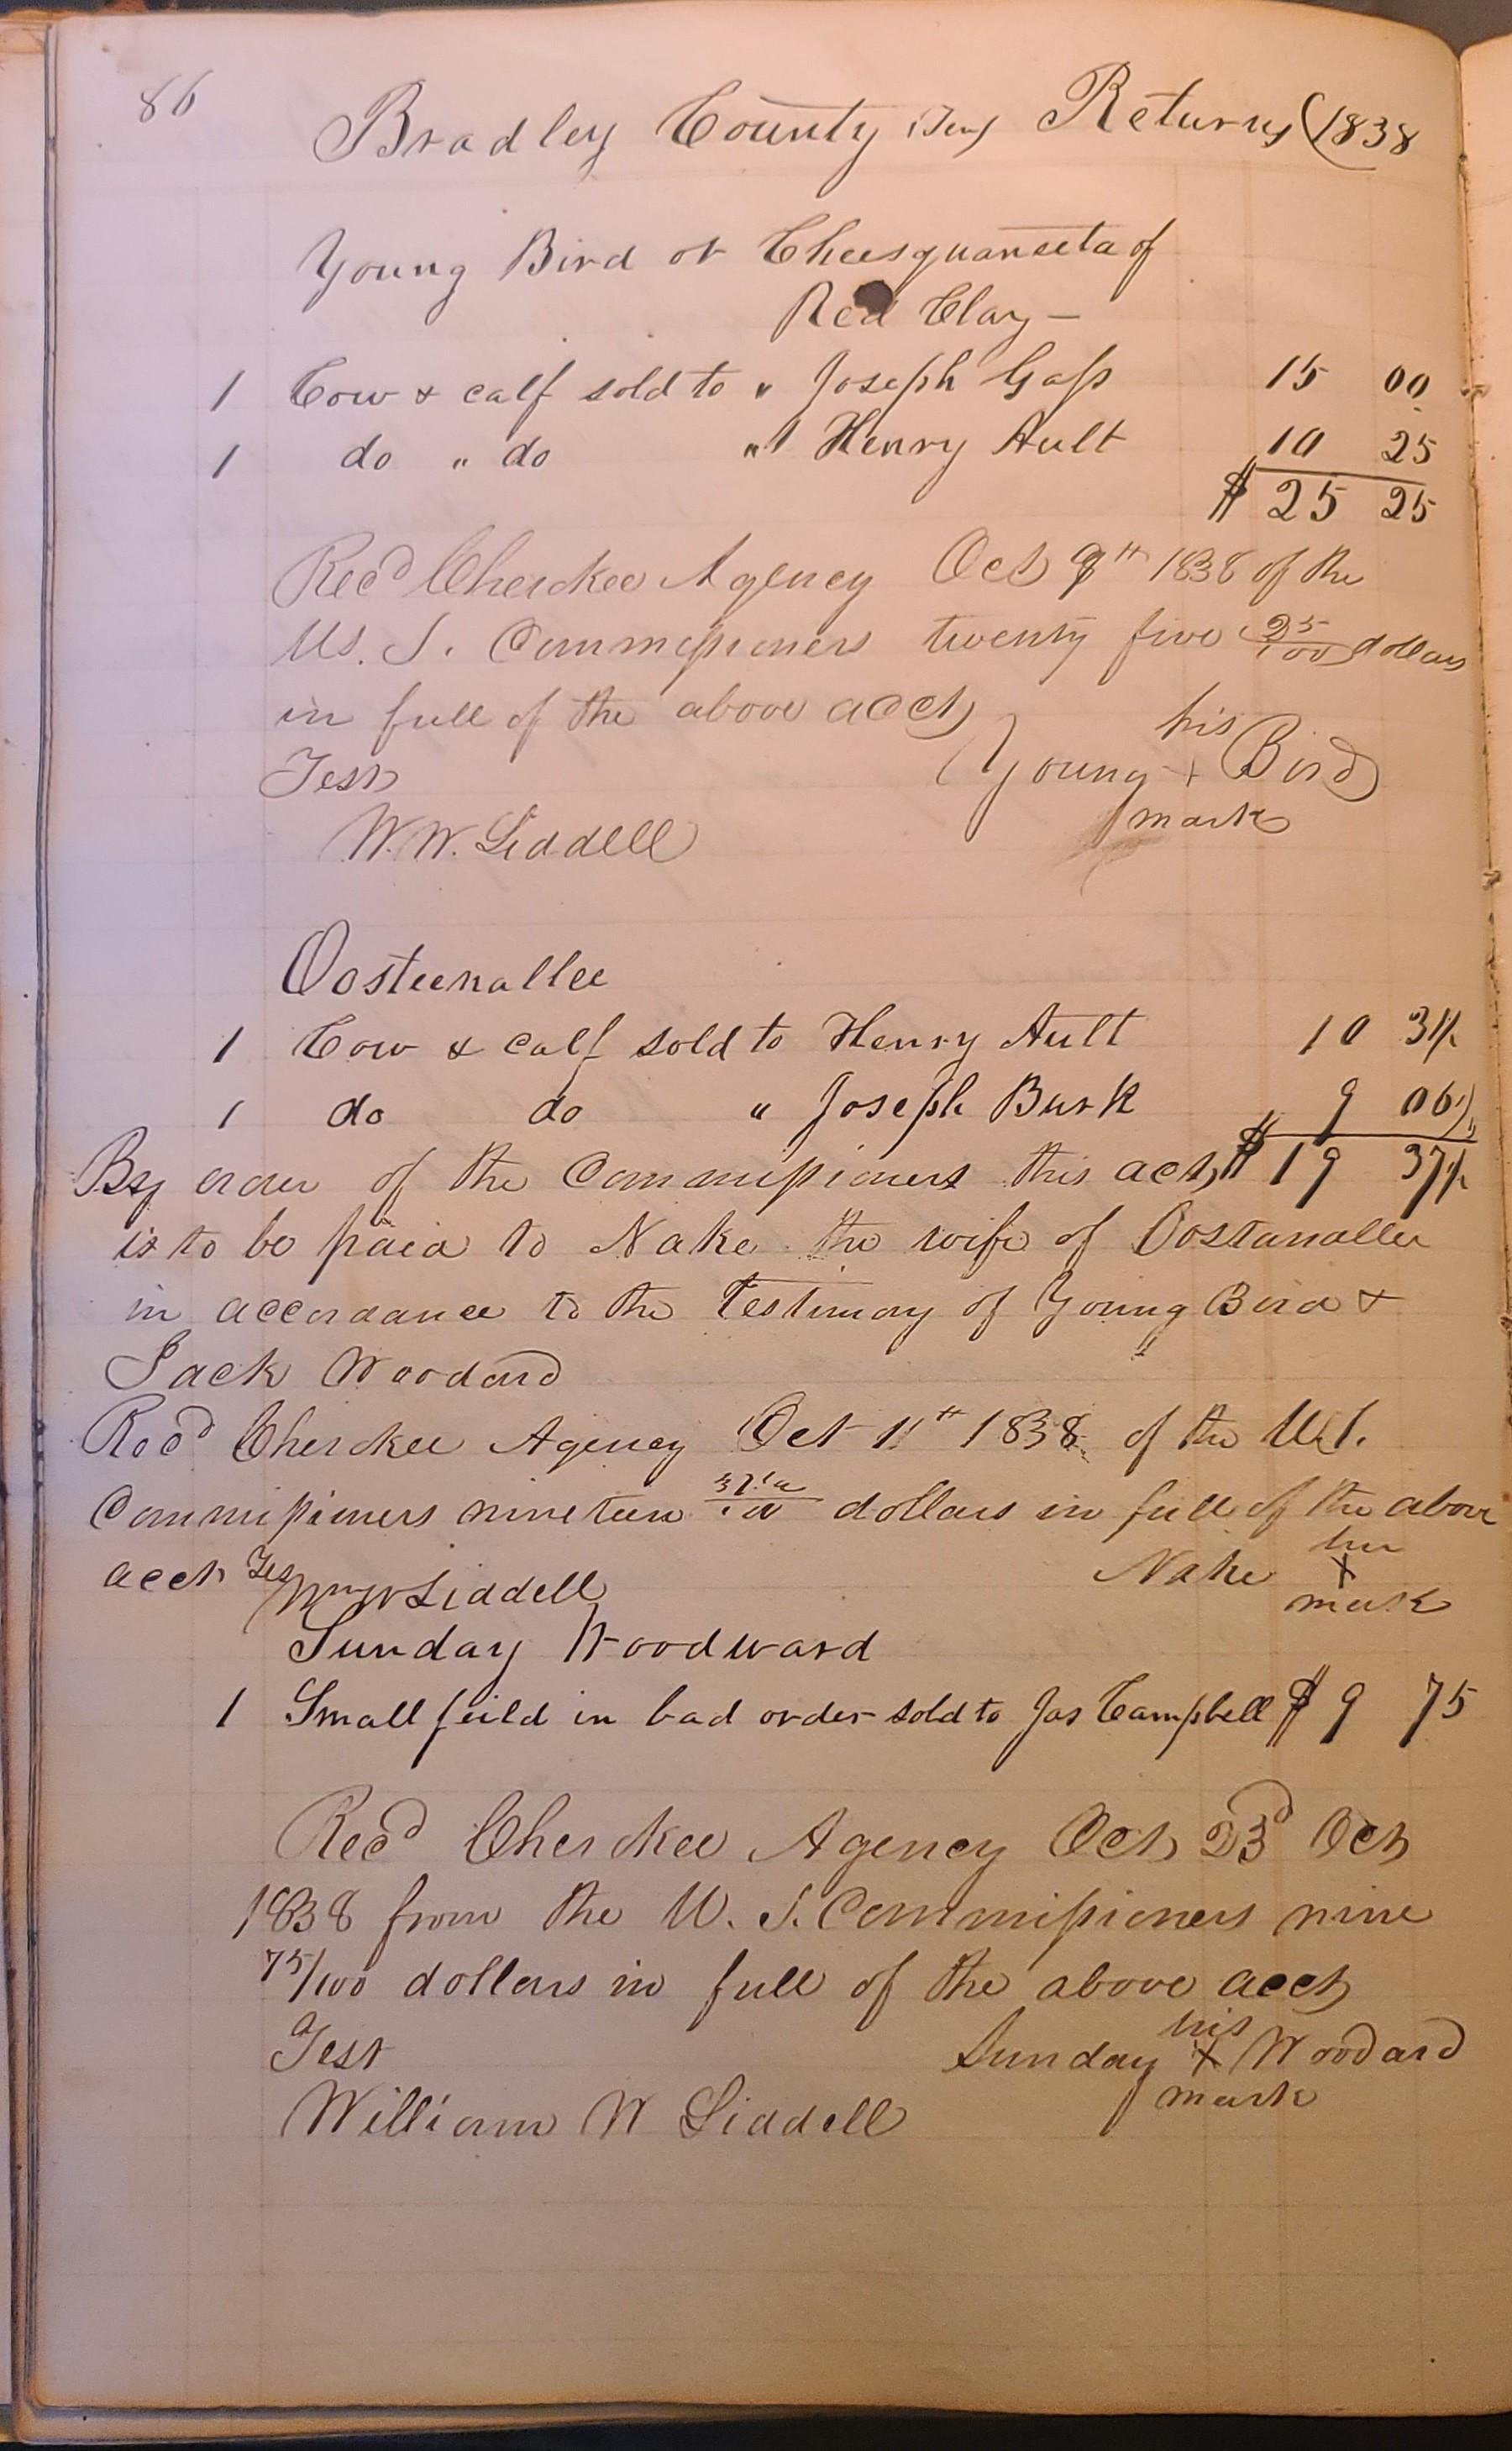 86
Bradley County (Ten) Returns (1838
Young Bird or Cheesquaneeta of
Red Clay —
1 Cow & calf sold to " Joseph Gass 15 00
1 do " do " Henry Ault 10 25
$ 25 25
Recd Cherokee Agency Oct 9th 1838 of the
U. S. Commissioners twenty five 25/100 dollars
in full of the above acct
his
Test Young + Bird
mark
W. W. Liddell
Oosteenallee
1 Cow & calf sold to Henry Ault 10 31¼
1 do do " Joseph Burk 9 06¼
By order of the Commissioners this acct $ 19 37½
is to be paid to Nake the wife of Oostanallee
in accordance to the Testimony of Young Bird &
Jack Woodard
Recd Cherokee Agency Oct 11th 1838 of the U S.
Commissioners nineteen 37½/100 dollars in full of the above
acct Tes Nake her x mark
Wm W Liddell
Sunday Woodward
1 Small feild in bad order sold to Jas Campbell $ 9 75
Recd Cherokee Agency Oct 23d Oct
1838 from the U. S. Commissioners nine
75/100 dollars in full of the above acct
his
Test Sunday x Woodard
mark
William W Liddell